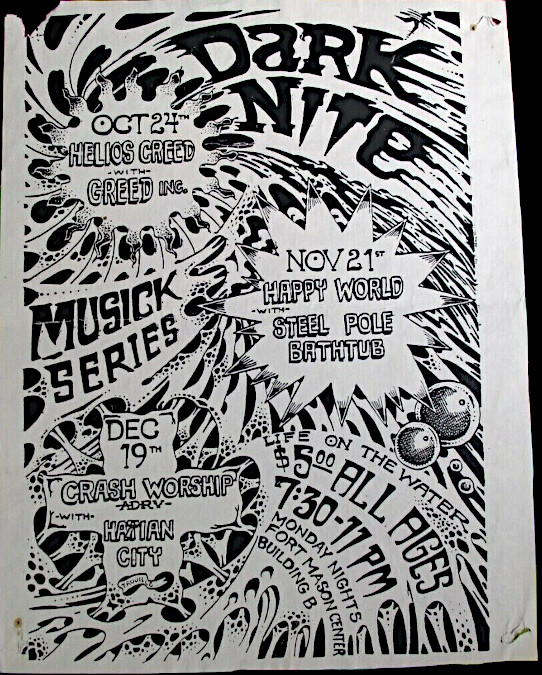 DARK
NITE
OCT 24TH
HELIOS CREED
-WITH-
GREED INC.
MUSICK
SERIES
NOV 21ST
HAPPY WORLD
-WITH-
STEEL POLE
BATHTUB
DEC
19TH
CRASH WORSHIP
ADRV
-WITH-
HAITIAN
CITY
LIFE ON THE WATER
$5.00 ALL AGES
7:30-11 PM
MONDAY NIGHTS
FORT MASON CENTER
BUILDING B